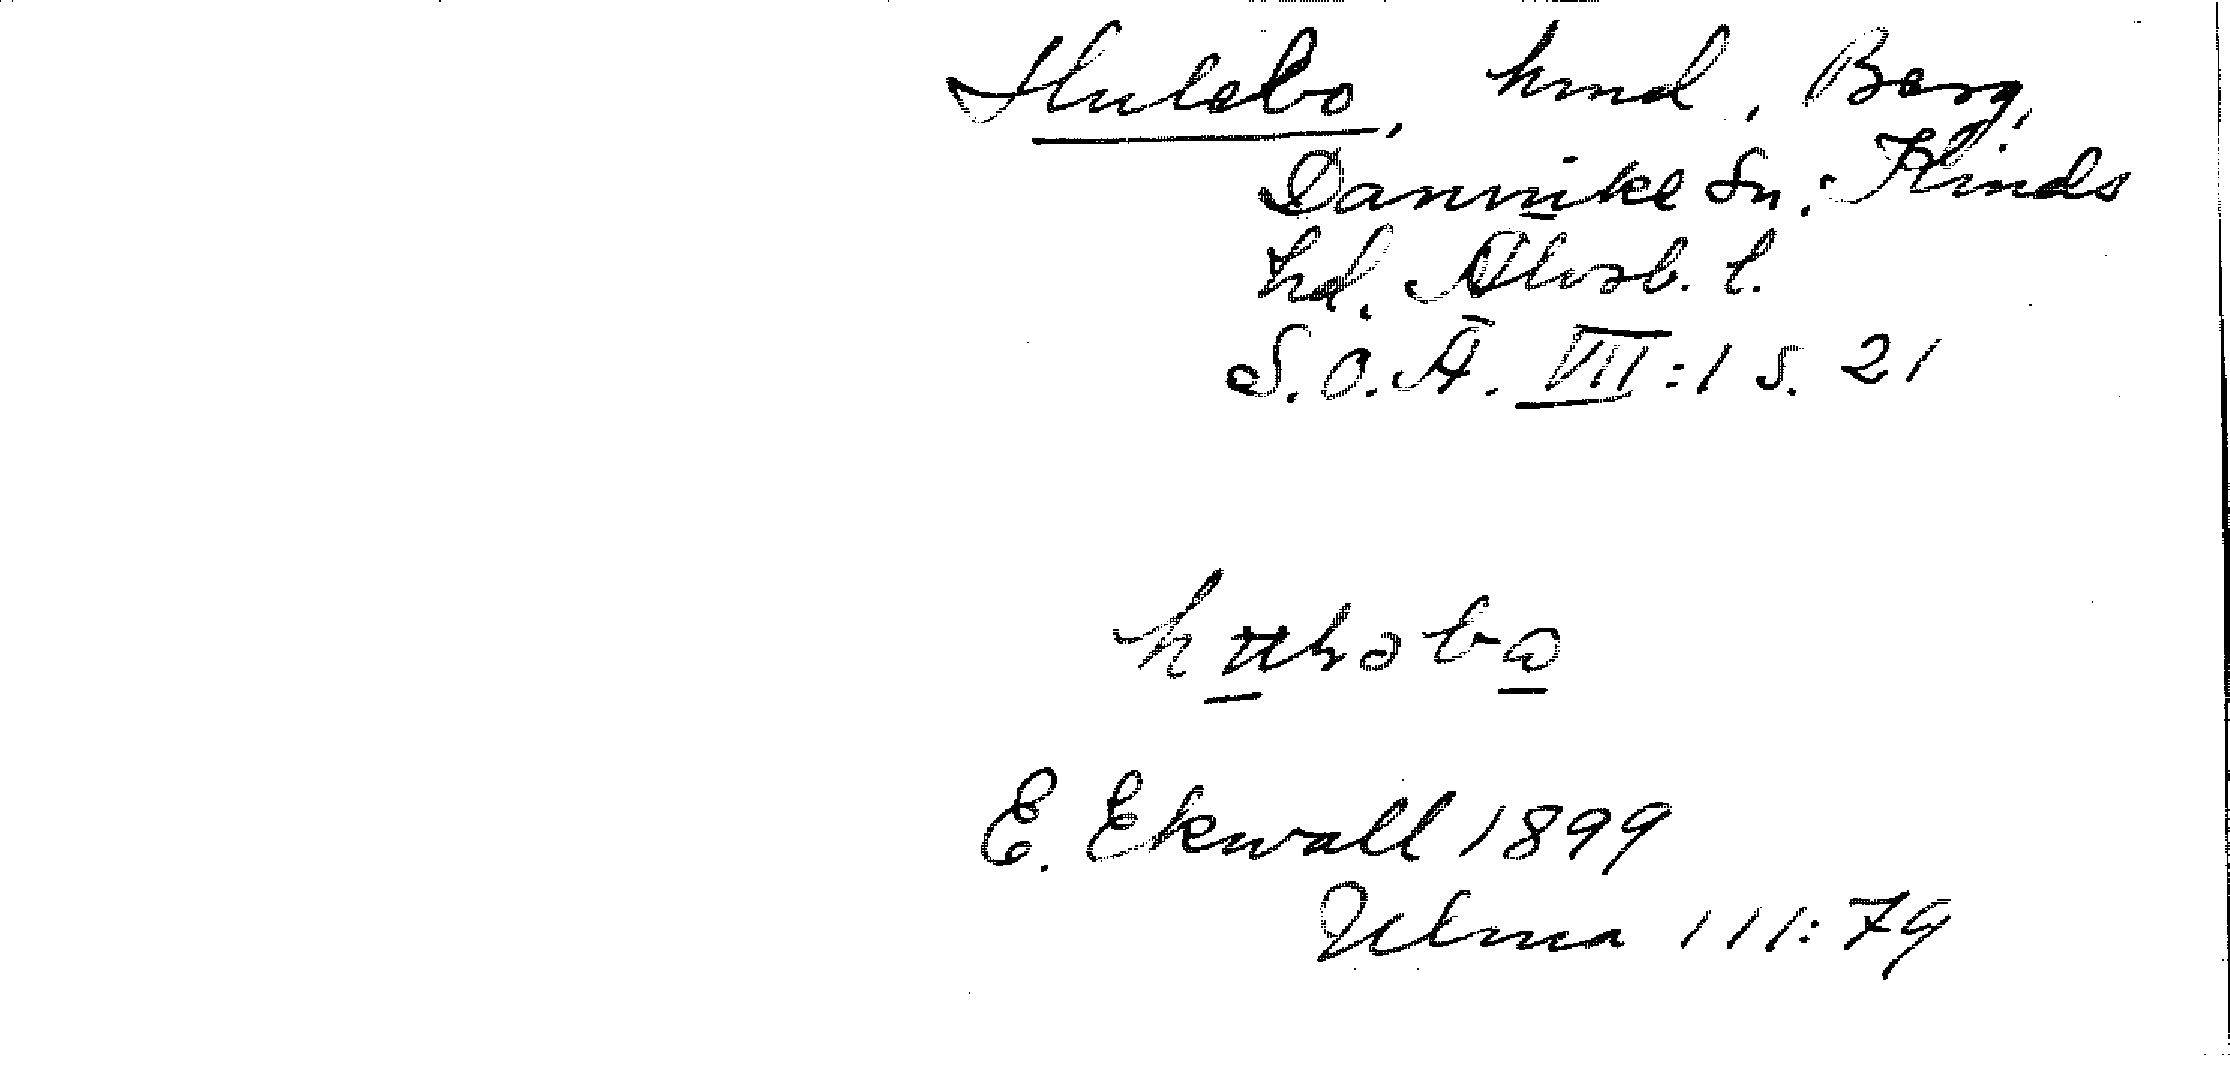 Hulebo, hmd, Berg,
Dannike sn; Kinds
hd. Älvsb. l.
S.O.Ä. VII:1 s. 21
E. Ekwall 1899
Ulma 111:79